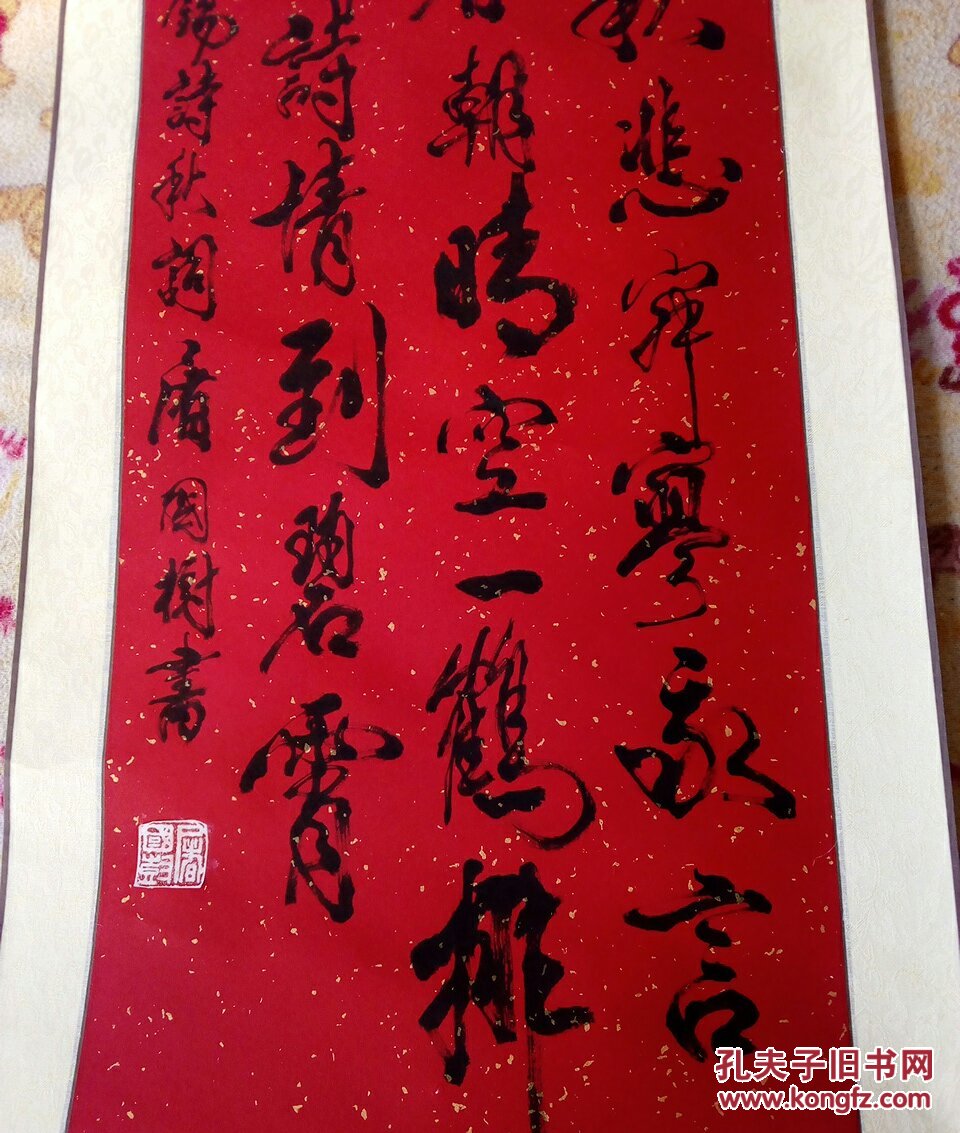 秋悲寂寥我言
春朝晴空一鶴排
詩情到碧霄
錫詩秋詞 國樹書
孔夫子旧书网
www.kongfz.com